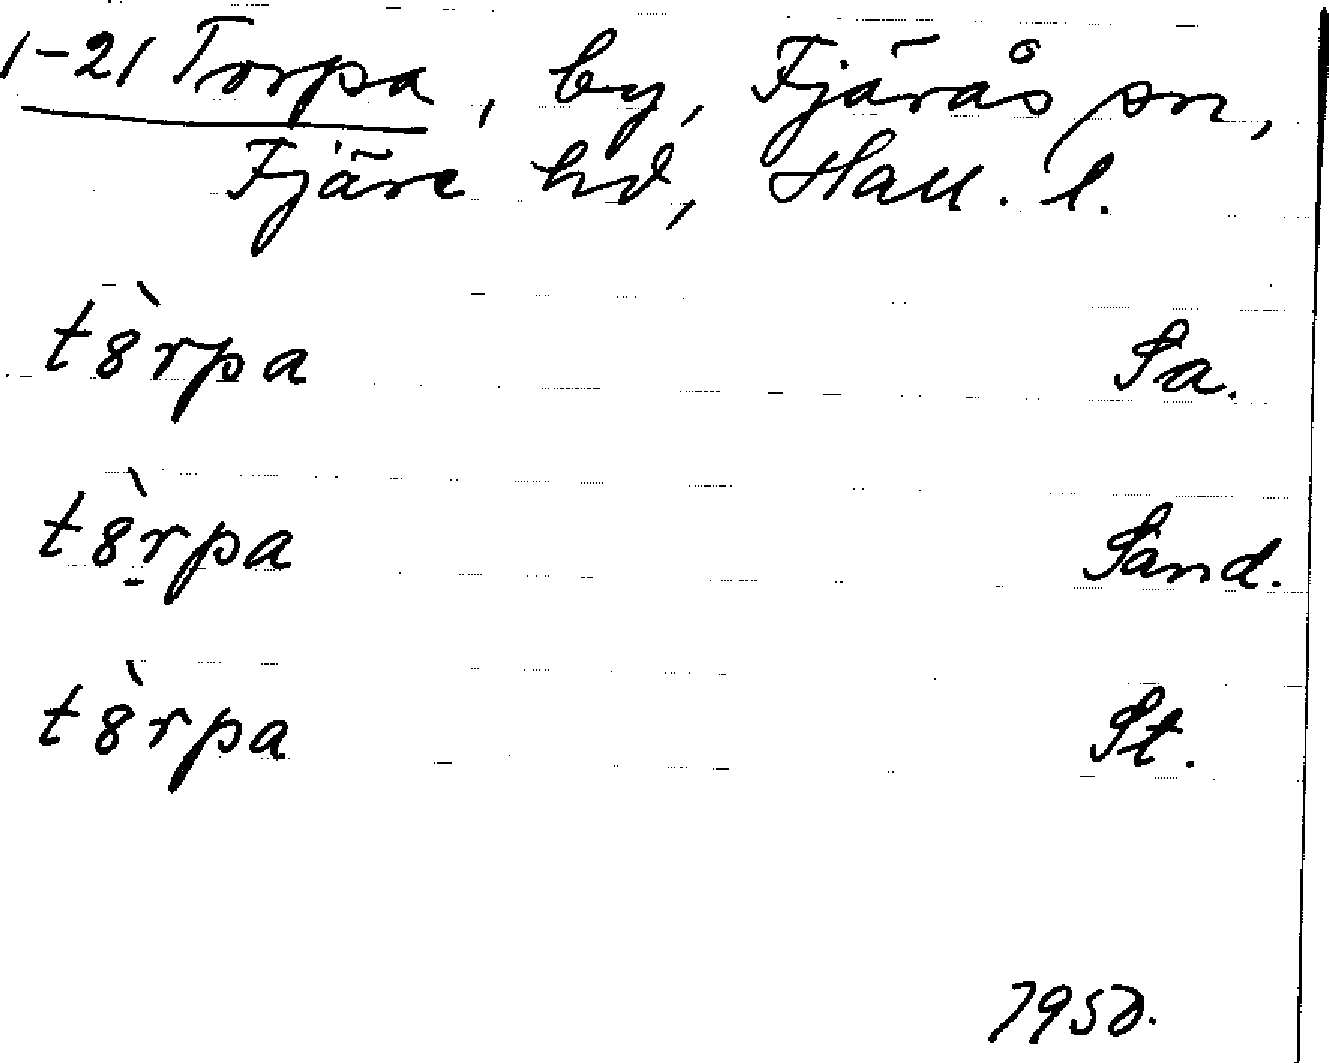 1-21 Torpa, by, Fjärås sn,
Fjäre hd, Hall. l.
t8̀rpa Sa.
t8̠̀rpa Sand.
t8̀rpa St.
1950.